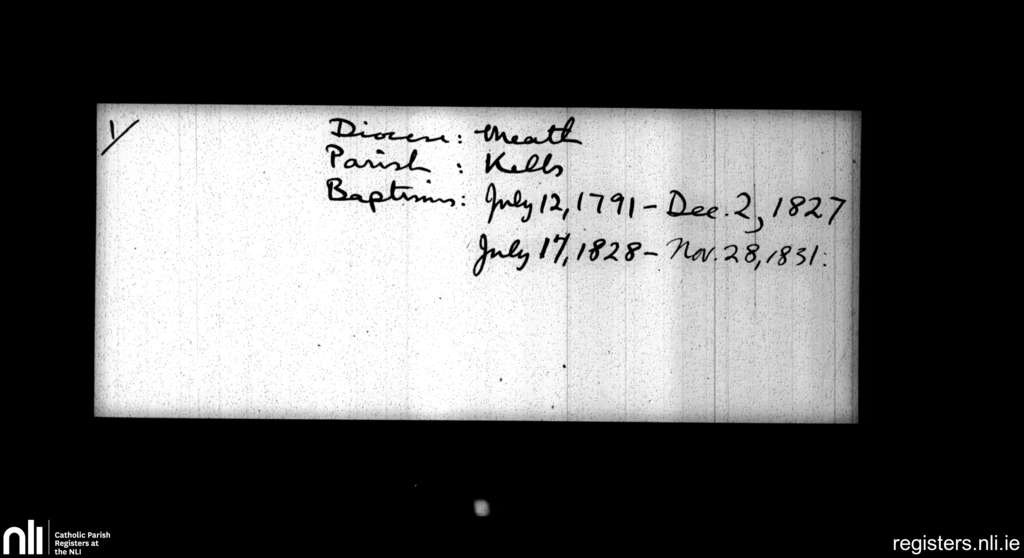 1/
Diocese: Meath
Parish : Kells
Baptisms: July 12, 1791 - Dec. 2, 1827
July 17, 1828 - Nov. 28, 1831.
nli
Catholic Parish
Registers at
the NLI
registers.nli.ie